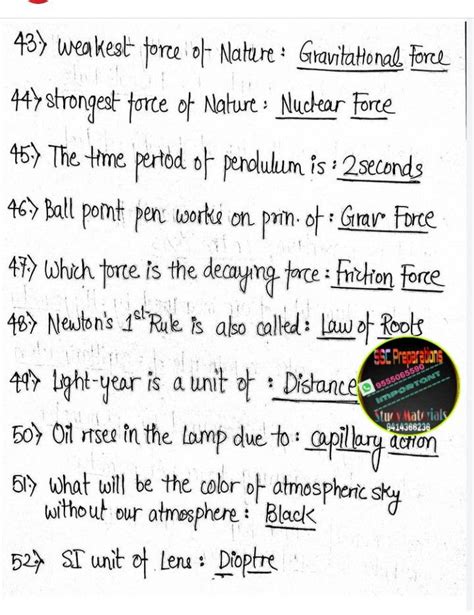 43) Weakest force of Nature : Gravitational Force
44) strongest force of Nature : Nuclear Force
45) The time period of pendulum is : 2 seconds
46) Ball point pen works on prin. of : Grav Force
47) Which force is the decaying force : Friction Force
48) Newton's 1st Rule is also called : Law of Roots
49) Light-year is a unit of : Distance
SSC Preparations
9555065590
IMPORTANT
Study Materials
9414366236
50) Oil rises in the Lamp due to : capillary action
51) What will be the color of atmospheric sky
without our atmosphere : Black
52) SI unit of Lens : Dioptre